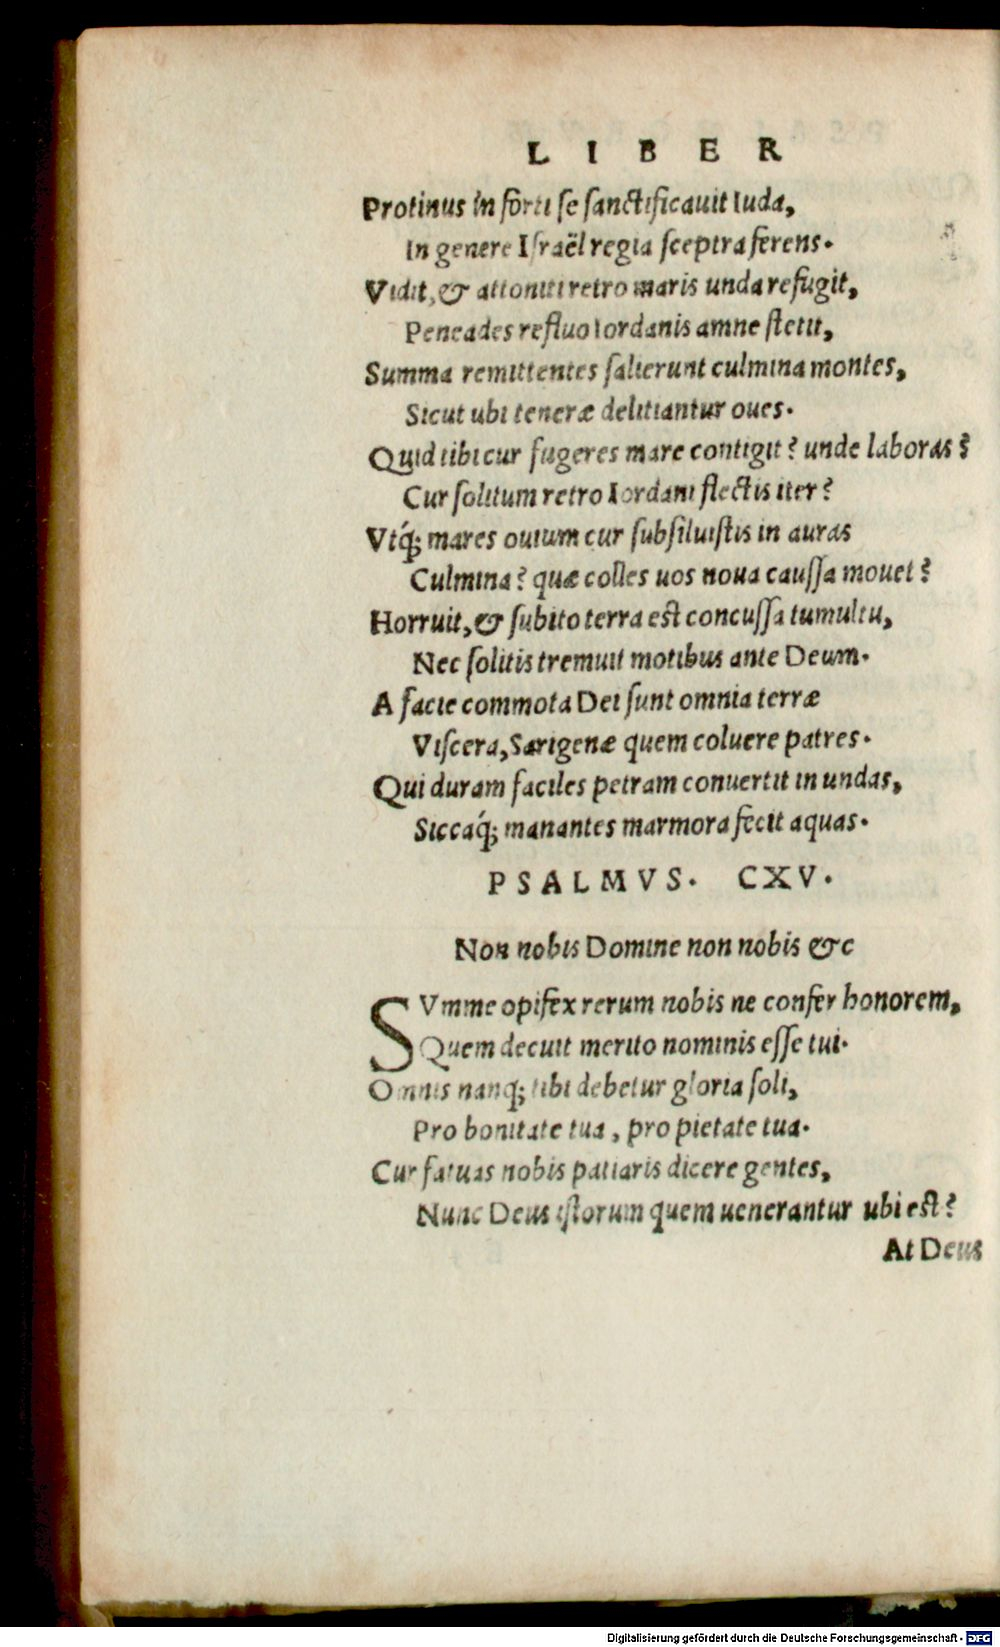 LIBER
Protinus in forti se sanctificauit Iuda,
In genere Israël regia sceptra ferens.
Vidit, & attoniti retro maris unda refugit,
Peneades refluo Iordanis amne stetit,
Summa remittentes salierunt culmina montes,
Sicut ubi teneræ delitiantur oues.
Quid tibi cur fugeres mare contigit? unde laboras?
Cur solitum retro Iordani flectis iter?
Vtq́; mares ouium cur subsiluistis in auras
Culmina? quæ colles uos noua caussa mouet?
Horruit, & subito terra est concussa tumultu,
Nec solitis tremuit motibus ante Deum.
A facie commota Dei sunt omnia terræ
Viscera, Sarigenæ quem coluere patres.
Qui duram faciles petram conuertit in undas,
Siccaq́; manantes marmora fecit aquas.
PSALMVS. CXV.
Non nobis Domine non nobis &c
SVmme opifex rerum nobis ne confer honorem,
Quem decuit merito nominis esse tui.
Omnis nanq; tibi debetur gloria soli,
Pro bonitate tua, pro pietate tua.
Cur fatuas nobis patiaris dicere gentes,
Nunc Deus istorum quem uenerantur ubi est?
At Deus
Digitalisierung gefördert durch die Deutsche Forschungsgemeinschaft - DFG